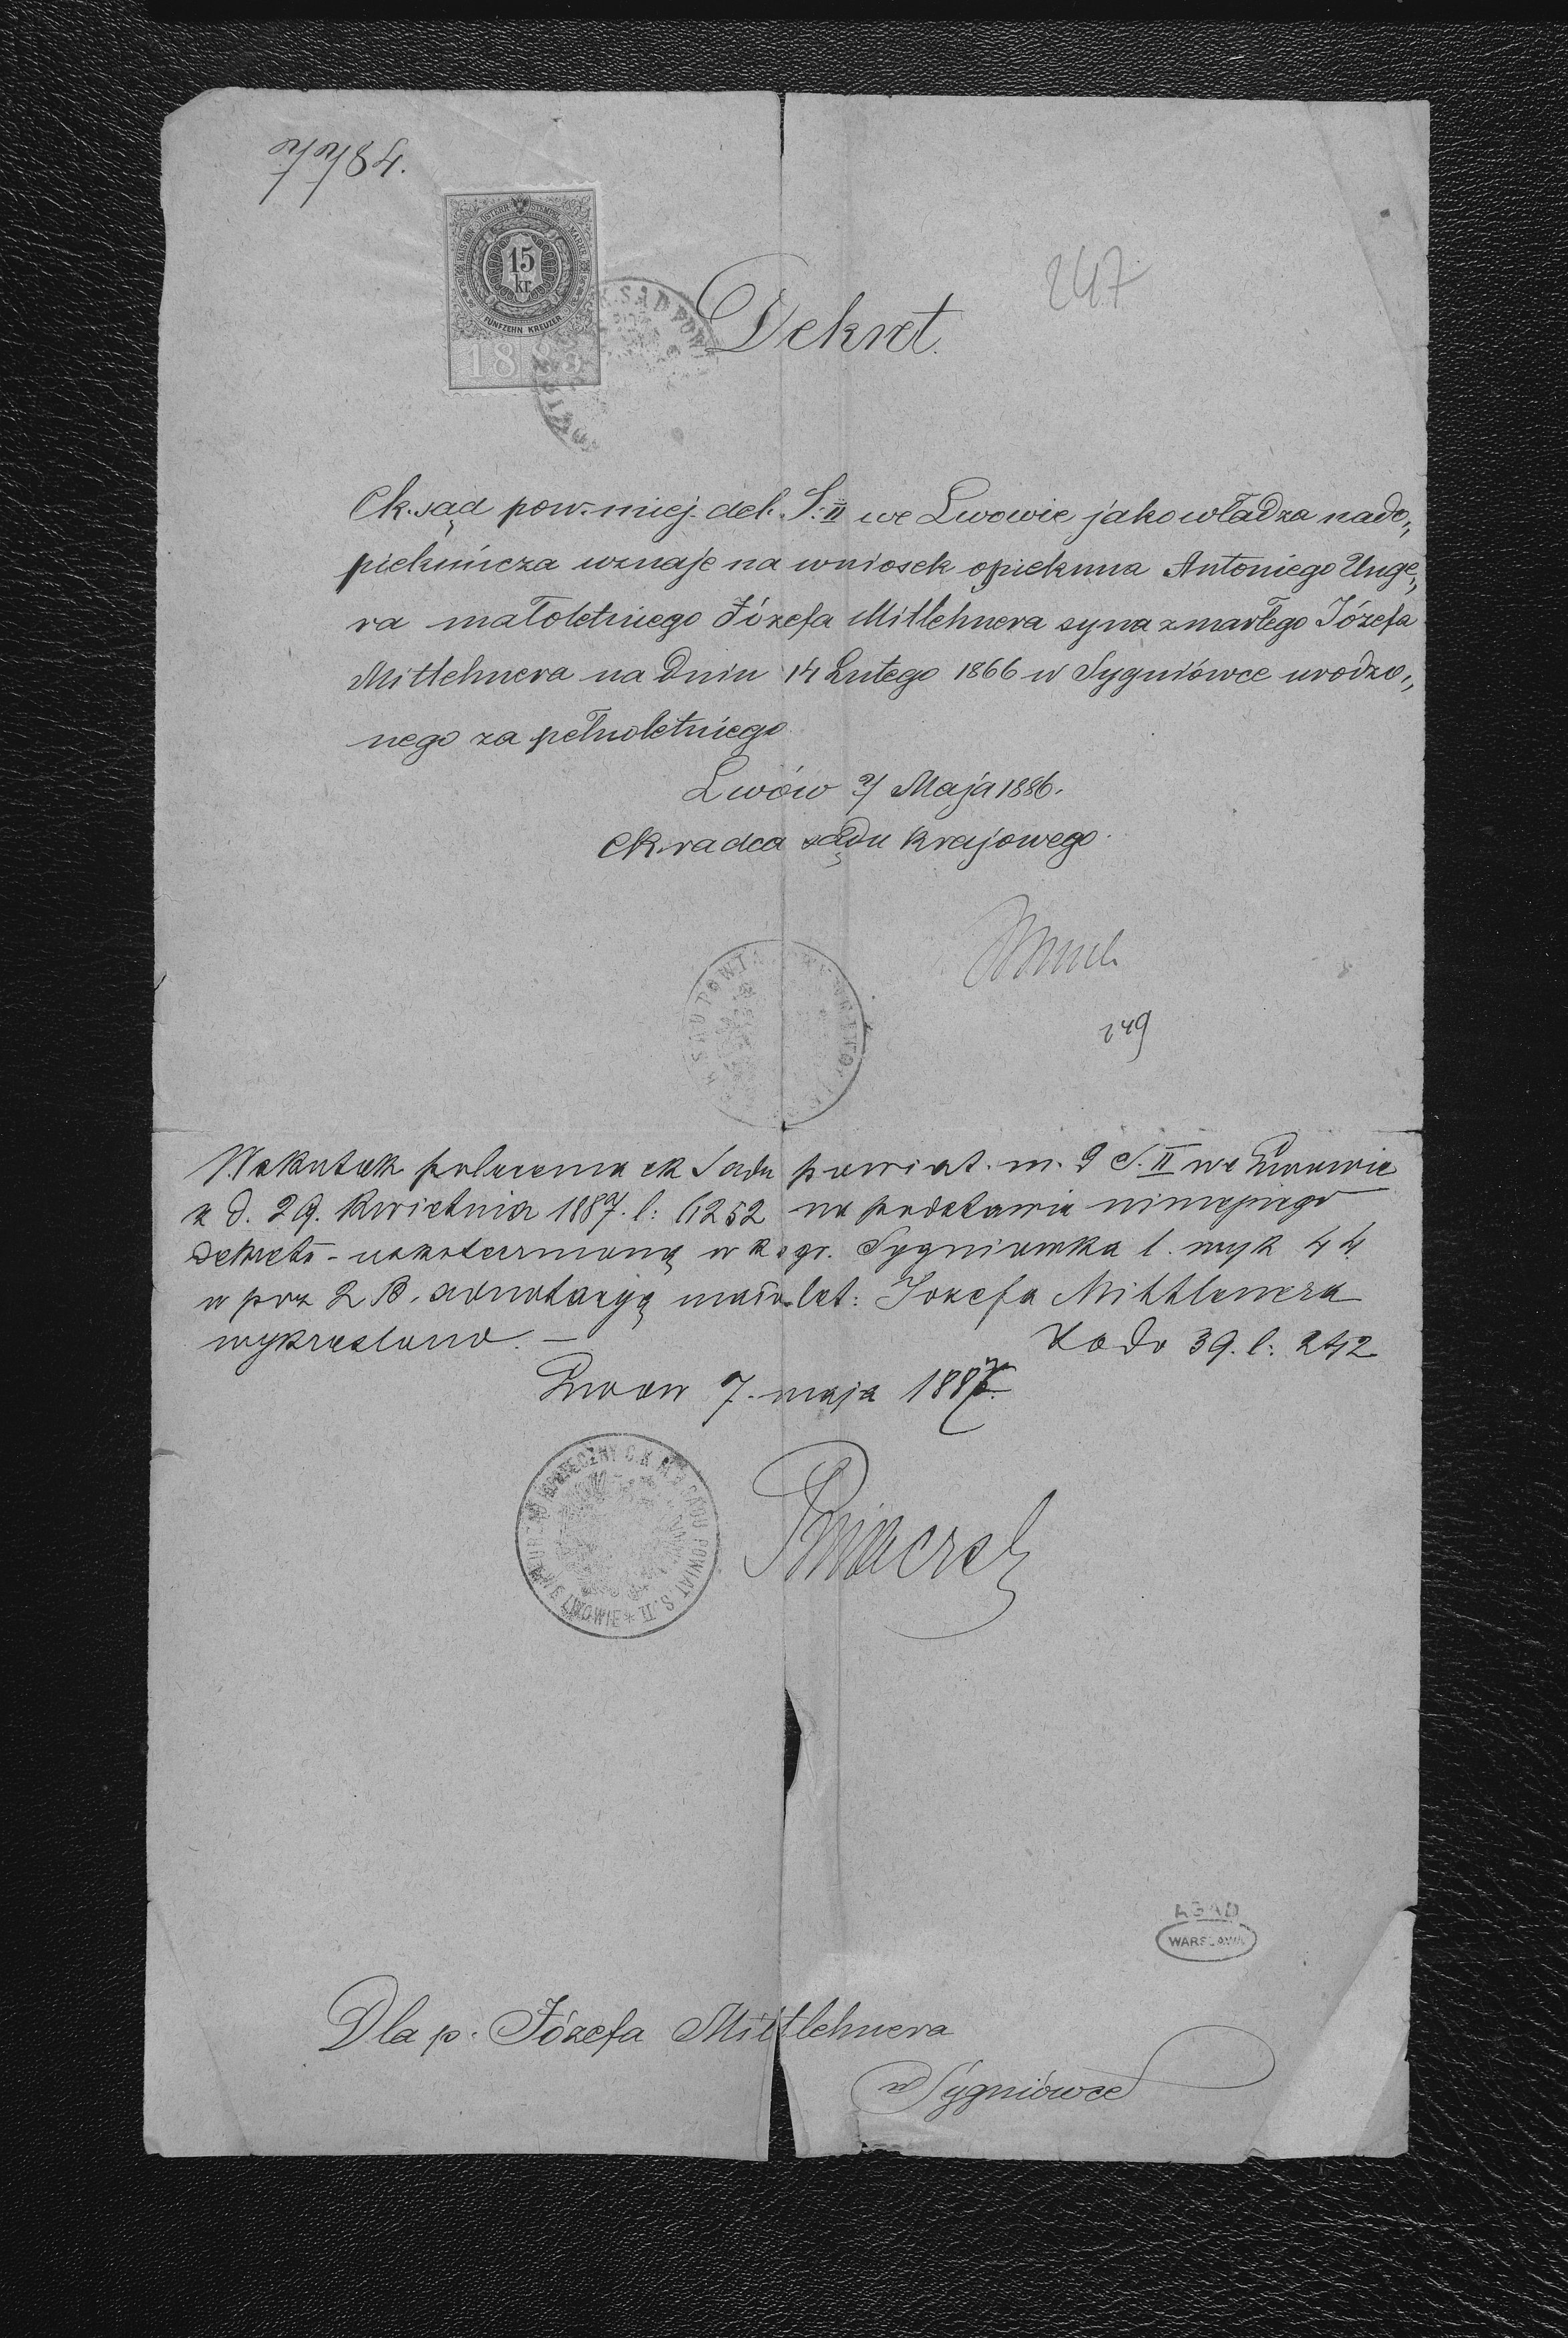 7784.
15
kr.
FÜNFZEHN KREUZER
188
247
Dekret.
Ck. sąd pow. miej. del. S: II we Lwowie jako władza nado„
piekuńcza uznaje na wniosek opiekuna Antoniego Unge„
ra małoletniego Józefa Mittlehnera syna zmarłego Józefa
Mittlehnera na dniu 14 Lutego 1866 w Sygniówce urodzo„
nego za pełnoletniego.
Lwów 7 Maja 1886.
Ck. radca sądu krajowego.
249
Wskutek polecenia ck Sądu powiat. m. d S. II we Lwowie
z d. 29. Kwietnia 1887. l: 6252 na podstawie niniejszego
dekretu - uskutecznioną w ks gr. Sygniówka l. wyk 44
w poz 2 B. adnotacyę małolet: Józefa Mittlenera
wykreślono. —
Lwow 7. maja 1887.
39. l: 242
C.K. M. D. SĄDU POWIAT. S. II. WE LWOWIE *
AGAD
WARSZAWA
Dla p. Józefa Mittlehnera
w Sygniówce